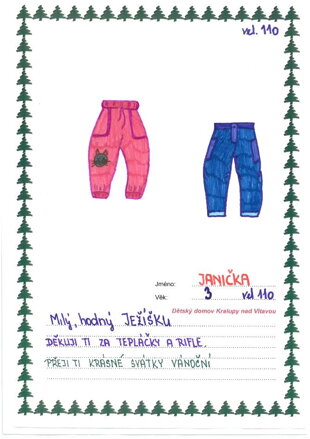 vel. 110
Jméno: JANIČKA
Věk: 3 vel 110
Dětský domov Kralupy nad Vltavou
Milý, hodný JEŽÍŠKU
DĚKUJI TI ZA TEPLÁČKY A RIFLE.
PŘEJI TI KRÁSNÉ SVÁTKY VÁNOČNÍ